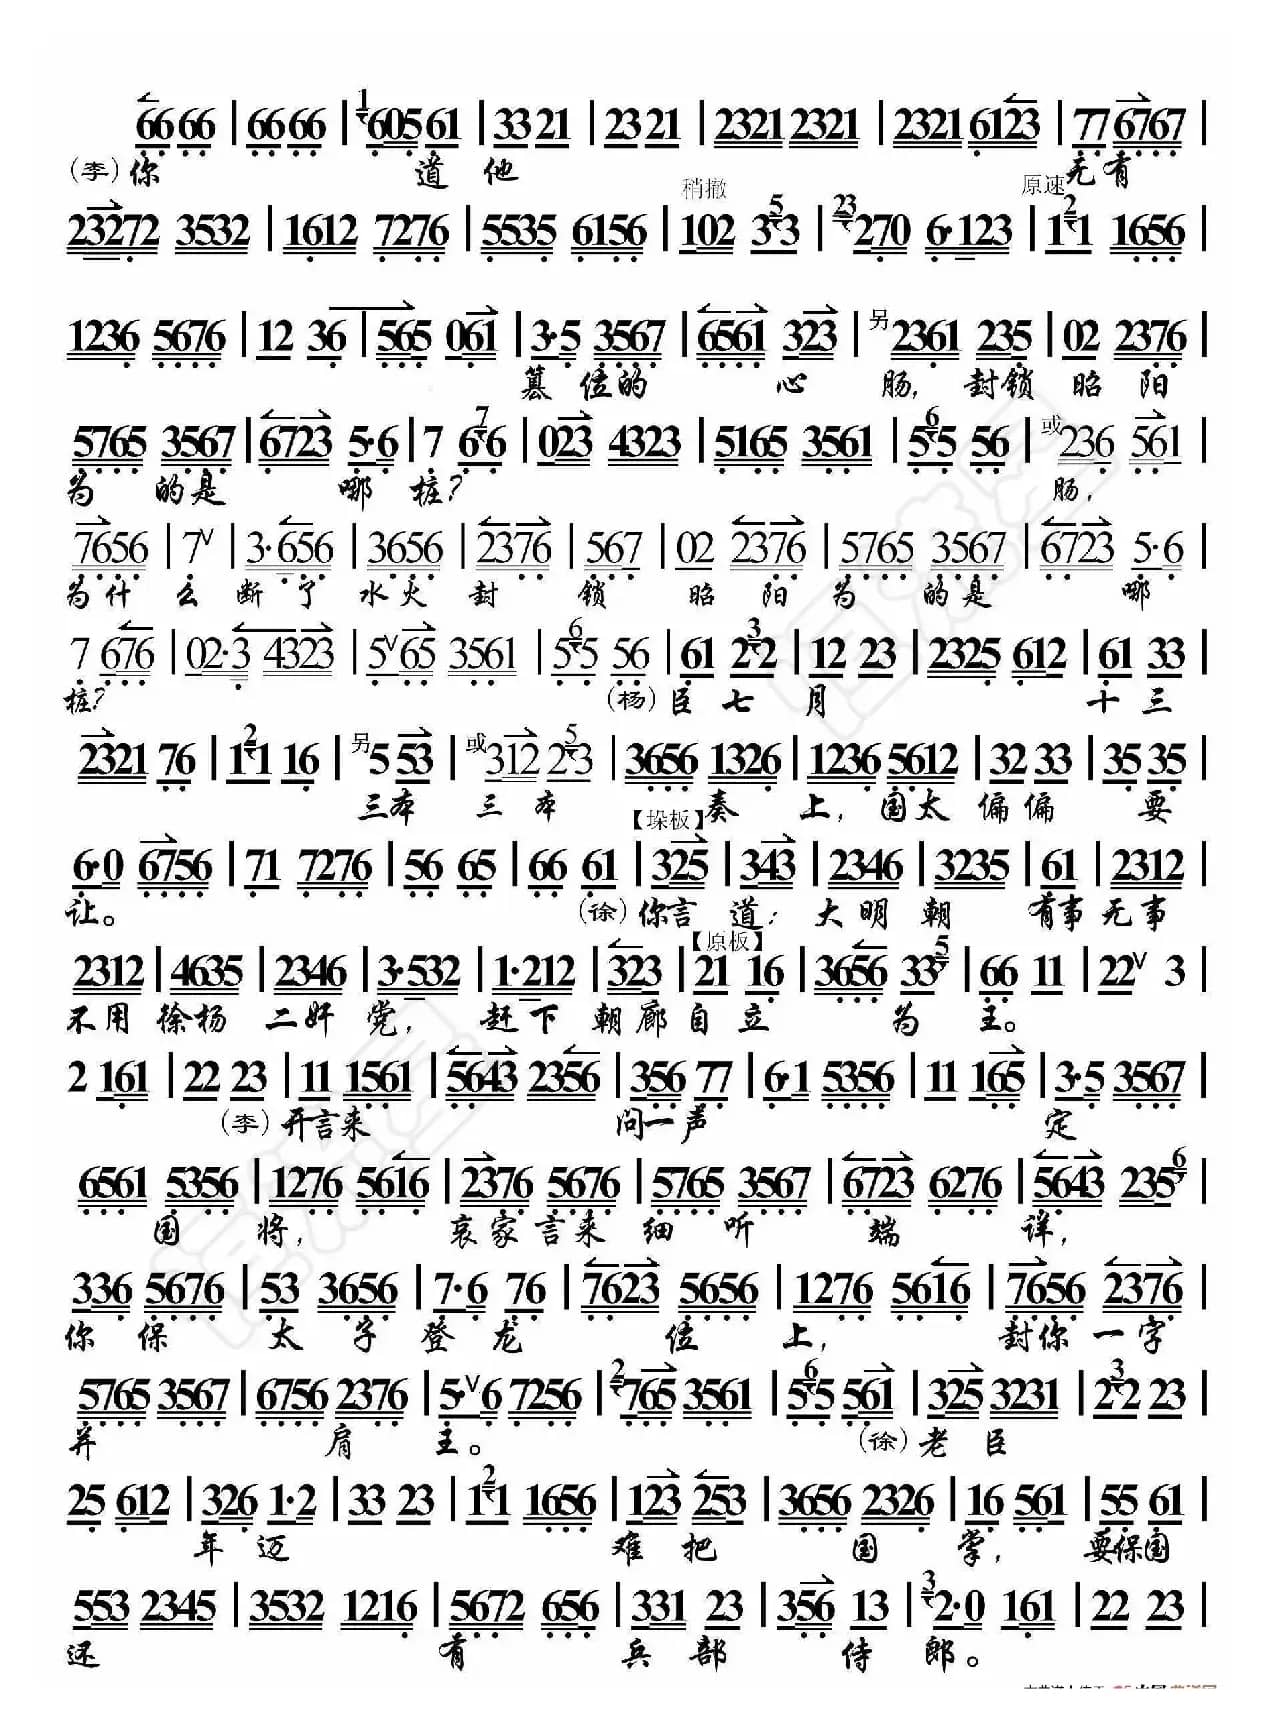 6666 | 6666 | ¹60561 | 3321 | 2321 | 23212321 | 23216123 | 776767 |
(李)你 道他 无有
232723532 | 16127276 | 55356156 | 稍撤 102 ⁵33 | ²³270 6·123 | 原速 ²11 1656 |
12365676 | 1236 | 565061 | 3·53567 | 6561323 | 另2361235 | 022376 |
篡位的 心 肠,封锁昭阳
57653567 | 67235·6 | 7 ⁷66 | 0234323 | 51653561 | ⁶5556 | 或236561
为的是 哪桩? 肠,
7656 | 7ᵛ | 3·656 | 3656 | 2376 | 567 | 022376 | 57653567 | 67235·6
为什么断了水火封锁昭阳为的是哪
7676 | 02·34323 | 5ᵛ653561 | ⁶5556 | 61 ³22 | 1223 | 2325612 | 6133 |
桩? (杨)臣七月 十三
232176 | ²1116 | 另553 | 或312 ⁵23 | 36561326 | 12365612 | 3233 | 3535 |
三本三本 奏上,国太偏偏要
6·06756 | 717276 | 5665 | 6661 | 【垛板】325 | 343 | 2346 | 3235 | 61 | 2312 |
让。 (徐)你言道:大明朝有事无事
2312 | 4635 | 2346 | 3·532 | 1·212 | 323 | 【原板】2116 | 365633⁵ | 6611 | 22ᵛ3 |
不用徐杨二奸党,赶下朝廊自立为王。
2161 | 2223 | 111561 | 56432356 | 35677 | 6·15356 | 11165 | 3·53567 |
(李)开言来 问一声 定
65615356 | 12765616 | 23765676 | 57653567 | 67236276 | 5643235⁶ |
国将, 哀家言来细听端详,
3365676 | 533656 | 7·676 | 76235656 | 12765616 | 76562376 |
你保太子登龙位上, 封你一字
57653567 | 67562376 | 5·ᵛ67256 | ²7653561 | ⁶55561 | 3253231 | ³2223 |
并肩王。 (徐)老臣
25612 | 3261·2 | 3323 | ²111656 | 123253 | 36562326 | 16561 | 5561 |
年迈 难把国掌,要保国
5532345 | 35321216 | 5672656 | 33123 | 35613 | ³2·0161 | 2223 |
还 有 兵部侍郎。